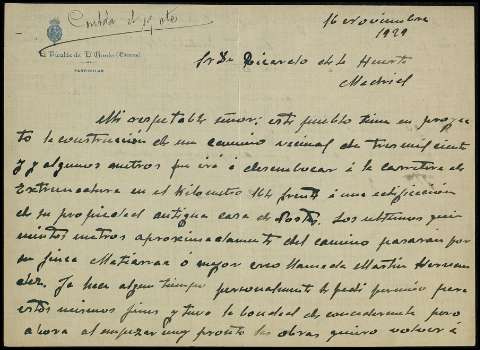 16 noviembre
1929
El Alcalde de El Gordo (Cáceres)
PARTICULAR
Sr Dn Ricardo de la Huerta
Madrid
Mi respetable señor: este pueblo tiene en proyec
to la construcción de un camino vecinal de tres mil ciento
y algunos metros que irá á desembocar á la carretera de
Extremadura en el Kilometro 164 frente á una edificación
de su propiedad antigua casa de Postas. Los ultimos quin
nientos metros aproximadamente del camino pasarán por
su finca ó mejor creo llamada Martin Hernan
dez. Ya hace algun tiempo personalmente le pedi permiso para
estos mismos fines y tuvo la bondad de concederme pero
ahora al empezar muy pronto las obras quiero volver á